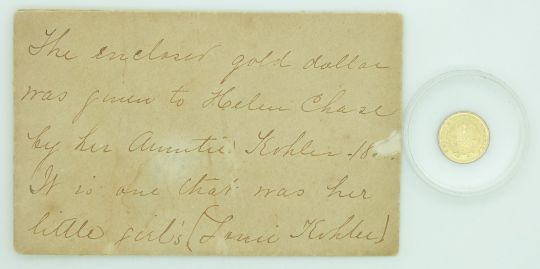 The enclosed gold dollar
was given to Helen Chase
by her Auntie Kohler - 18
It is one that was her
little girl's (Kohler)